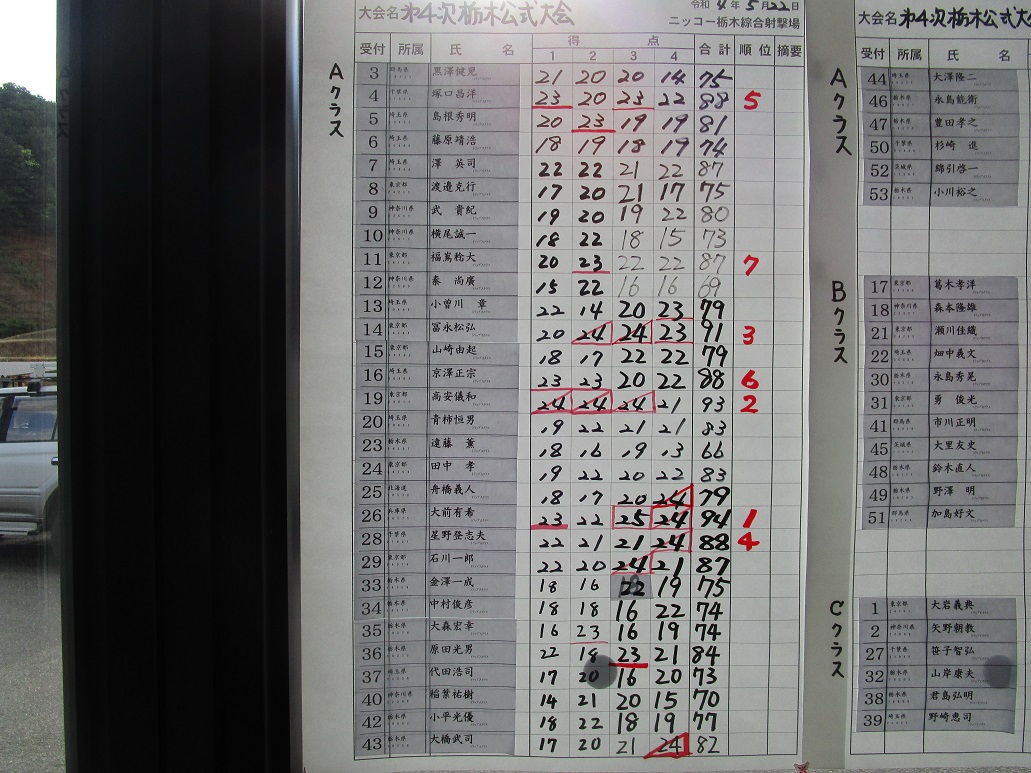 令和 4年 5月22日
大会名 第4次栃木公式大会
ニッコー栃木綜合射撃場
受付 所属 氏 名 得 点 合計 順位 摘要
1 2 3 4
Aクラス
3 群馬県 黒澤健晃 21 20 20 14 75
4 千葉県 塚口昌洋 23 20 23 22 88 5
5 埼玉県 島根秀明 20 23 19 19 81
6 埼玉県 藤原靖浩 18 19 18 19 74
7 埼玉県 澤 英司 22 22 21 22 87
8 東京都 渡邉克行 17 20 21 17 75
9 神奈川県 武 貴紀 19 20 19 22 80
10 神奈川県 横尾誠一 18 22 18 15 73
11 東京都 福嶌稔大 20 23 22 22 87 7
12 神奈川県 秦 尚廣 15 22 16 16 69
13 埼玉県 小曾川 章 22 14 20 23 79
14 東京都 冨永松弘 20 24 24 23 91 3
15 東京都 山崎由起 18 17 22 22 79
16 埼玉県 京澤正宗 23 23 20 22 88 6
19 東京都 高安儀和 24 24 24 21 93 2
20 埼玉県 青柿恒男 19 22 21 21 83
23 栃木県 遠藤 薫 18 16 19 13 66
24 東京都 田中 孝 19 22 20 22 83
25 北海道 舟橋義人 18 17 20 24 79
26 兵庫県 大前有希 23 22 25 24 94 1
28 千葉県 星野登志夫 22 21 21 24 88 4
29 東京都 石川一郎 22 20 24 21 87
33 栃木県 金澤一成 18 16 22 19 75
34 栃木県 中村俊彦 18 18 16 22 74
35 栃木県 大森宏幸 16 23 16 19 74
36 栃木県 原田光男 22 18 23 21 84
37 埼玉県 代田浩司 17 20 16 20 73
40 神奈川県 稲葉祐樹 14 21 20 15 70
42 栃木県 小平光優 18 22 18 19 77
43 栃木県 大橋武司 17 20 21 24 82
大会名 第4次栃木公式大会
受付 所属 氏 名
Aクラス
44 埼玉県 大澤隆二
46 栃木県 永島能衛
47 栃木県 豊田孝之
50 千葉県 杉崎 進
52 茨城県 綿引啓一
53 栃木県 小川裕之
Bクラス
17 東京都 葛木孝洋
18 神奈川県 森本隆雄
21 東京都 瀬川佳織
22 埼玉県 畑中義文
30 栃木県 永島秀晃
31 東京都 勇 俊光
41 群馬県 市川正明
45 茨城県 大里友史
48 栃木県 鈴木直人
49 栃木県 野澤 明
51 群馬県 加島好文
Cクラス
1 東京都 大岩義典
2 神奈川県 矢野朝教
27 千葉県 笹子智弘
32 山岸康夫
38 栃木県 君島弘明
39 埼玉県 野崎惠司